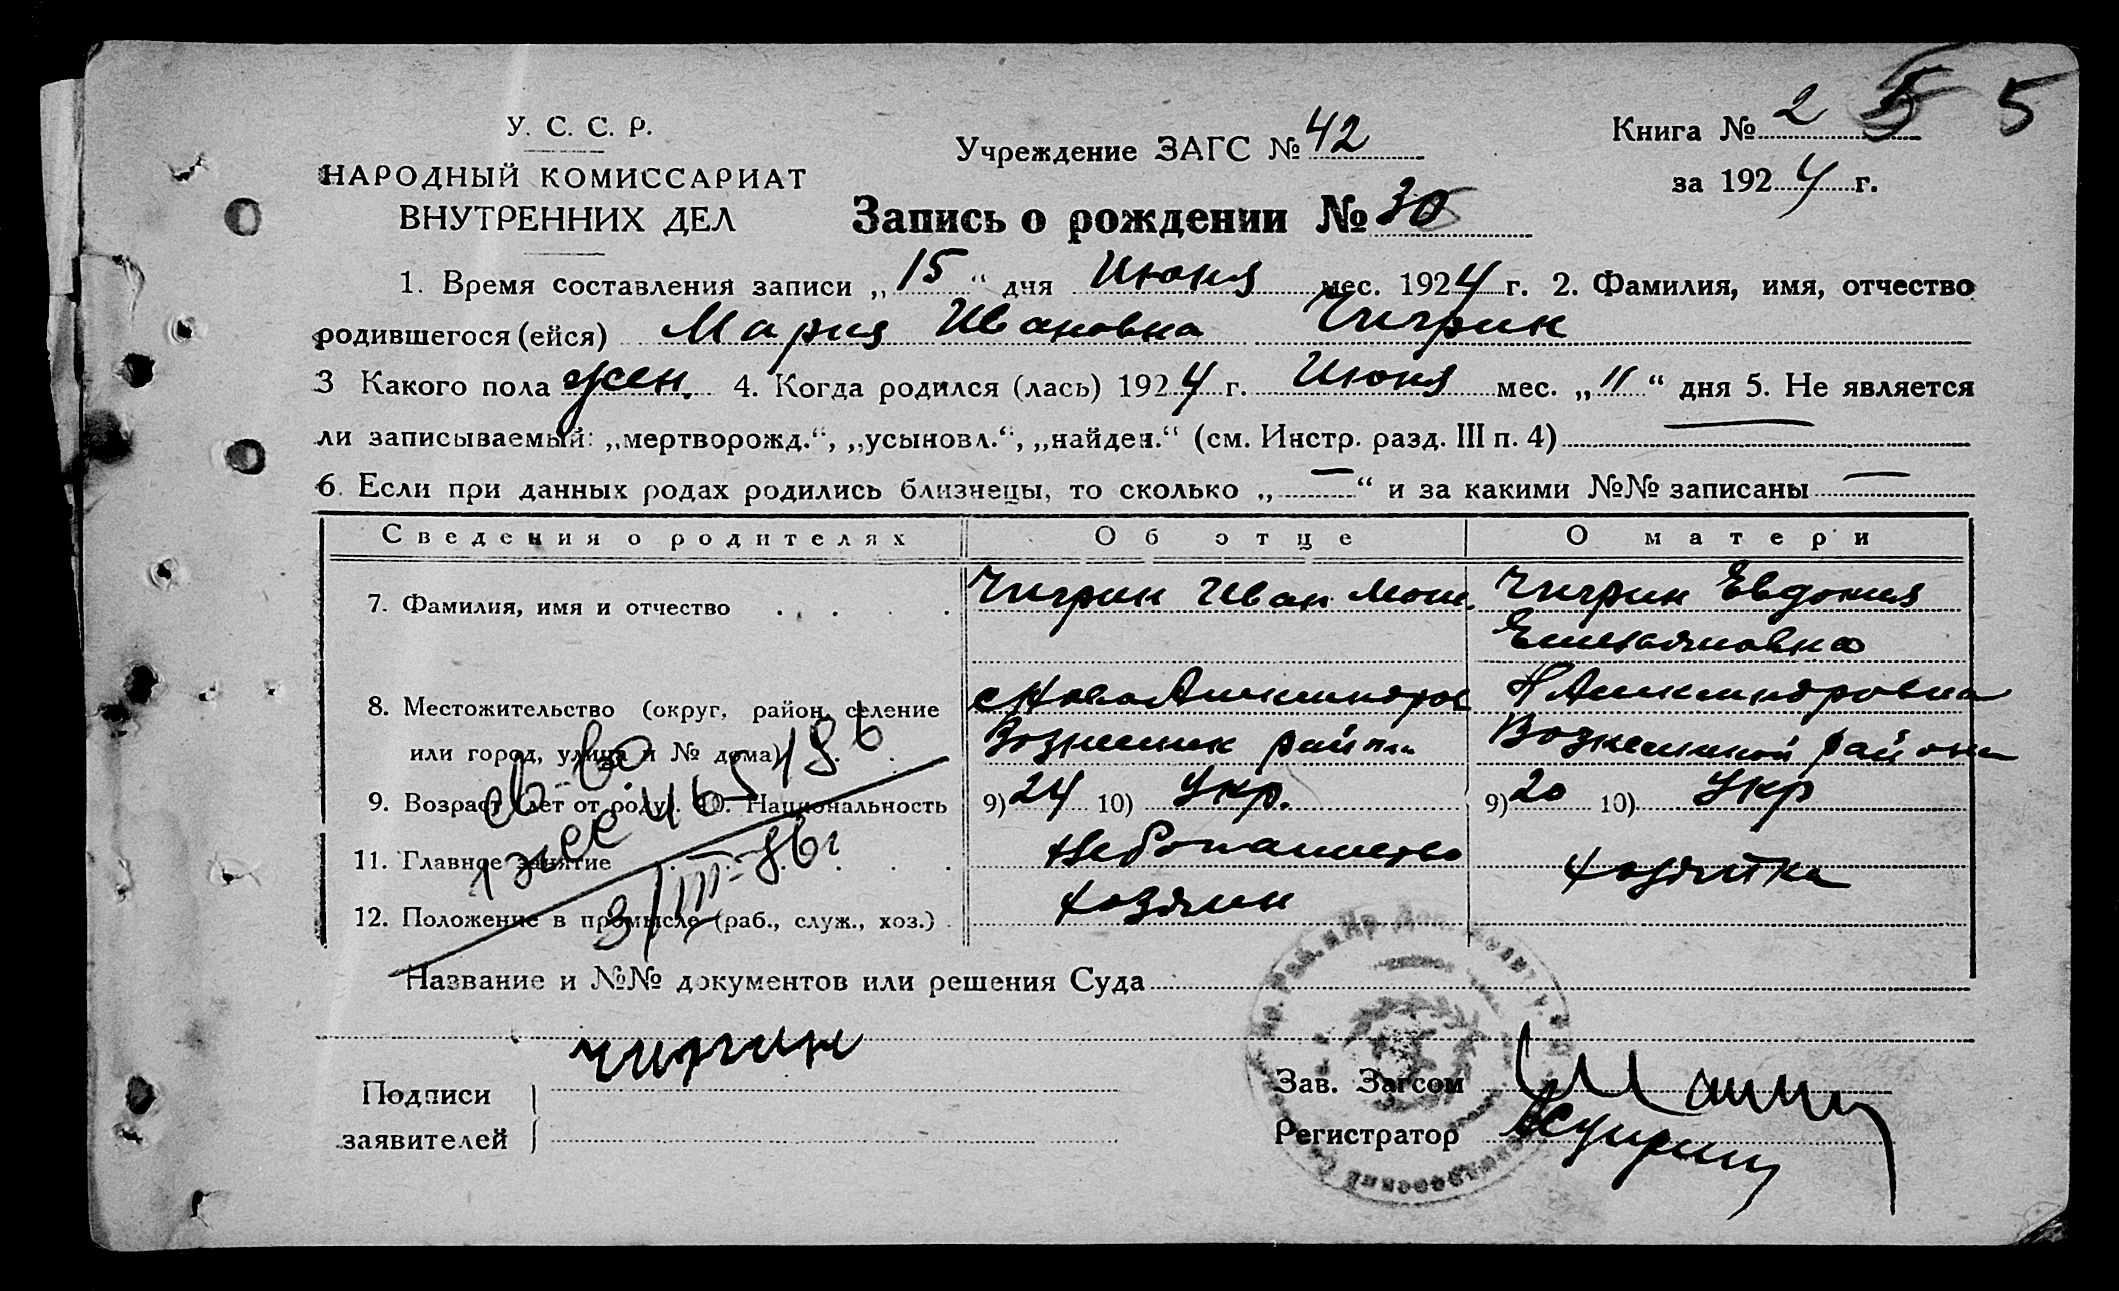 У. С. С. Р.
НАРОДНЫЙ КОМИССАРИАТ
ВНУТРЕННИХ ДЕЛ
Учреждение ЗАГС № 42
Книга № 2 5 5
за 1924 г.
Запись о рождении № 30
1. Время составления записи „15“ дня Июня мес. 1924 г. 2. Фамилия, имя, отчество
родившегося (ейся) Мария Ивановна Чигрин
3 Какого пола жен. 4. Когда родился (лась) 1924 г. Июня мес. „11“ дня 5. Не является
ли записываемый: „мертворожд.“, „усыновл.“, „найден.“ (см. Инстр. разд. III п. 4) —
6. Если при данных родах родились близнецы, то сколько „—“ и за какими №№ записаны —
Сведения о родителях Об отце О матери
7. Фамилия, имя и отчество . . . . Чигрин Иван Чигрин Евдокия
Емельяновна
8. Местожительство (округ, район, селение
или город, улица и № дома) район района
9. Возраст (лет от роду). 10. Национальность 9) 24 10) Укр. 9) 20 10) Укр
11. Главное занятие Хлебопашество хозяйка
12. Положение в промысле (раб., служ., хоз.) . хозяин
св-во
186
3/III-86г
Название и №№ документов или решения Суда
Подписи
заявителей
Чигрин
Зав. Загсом
Регистратор